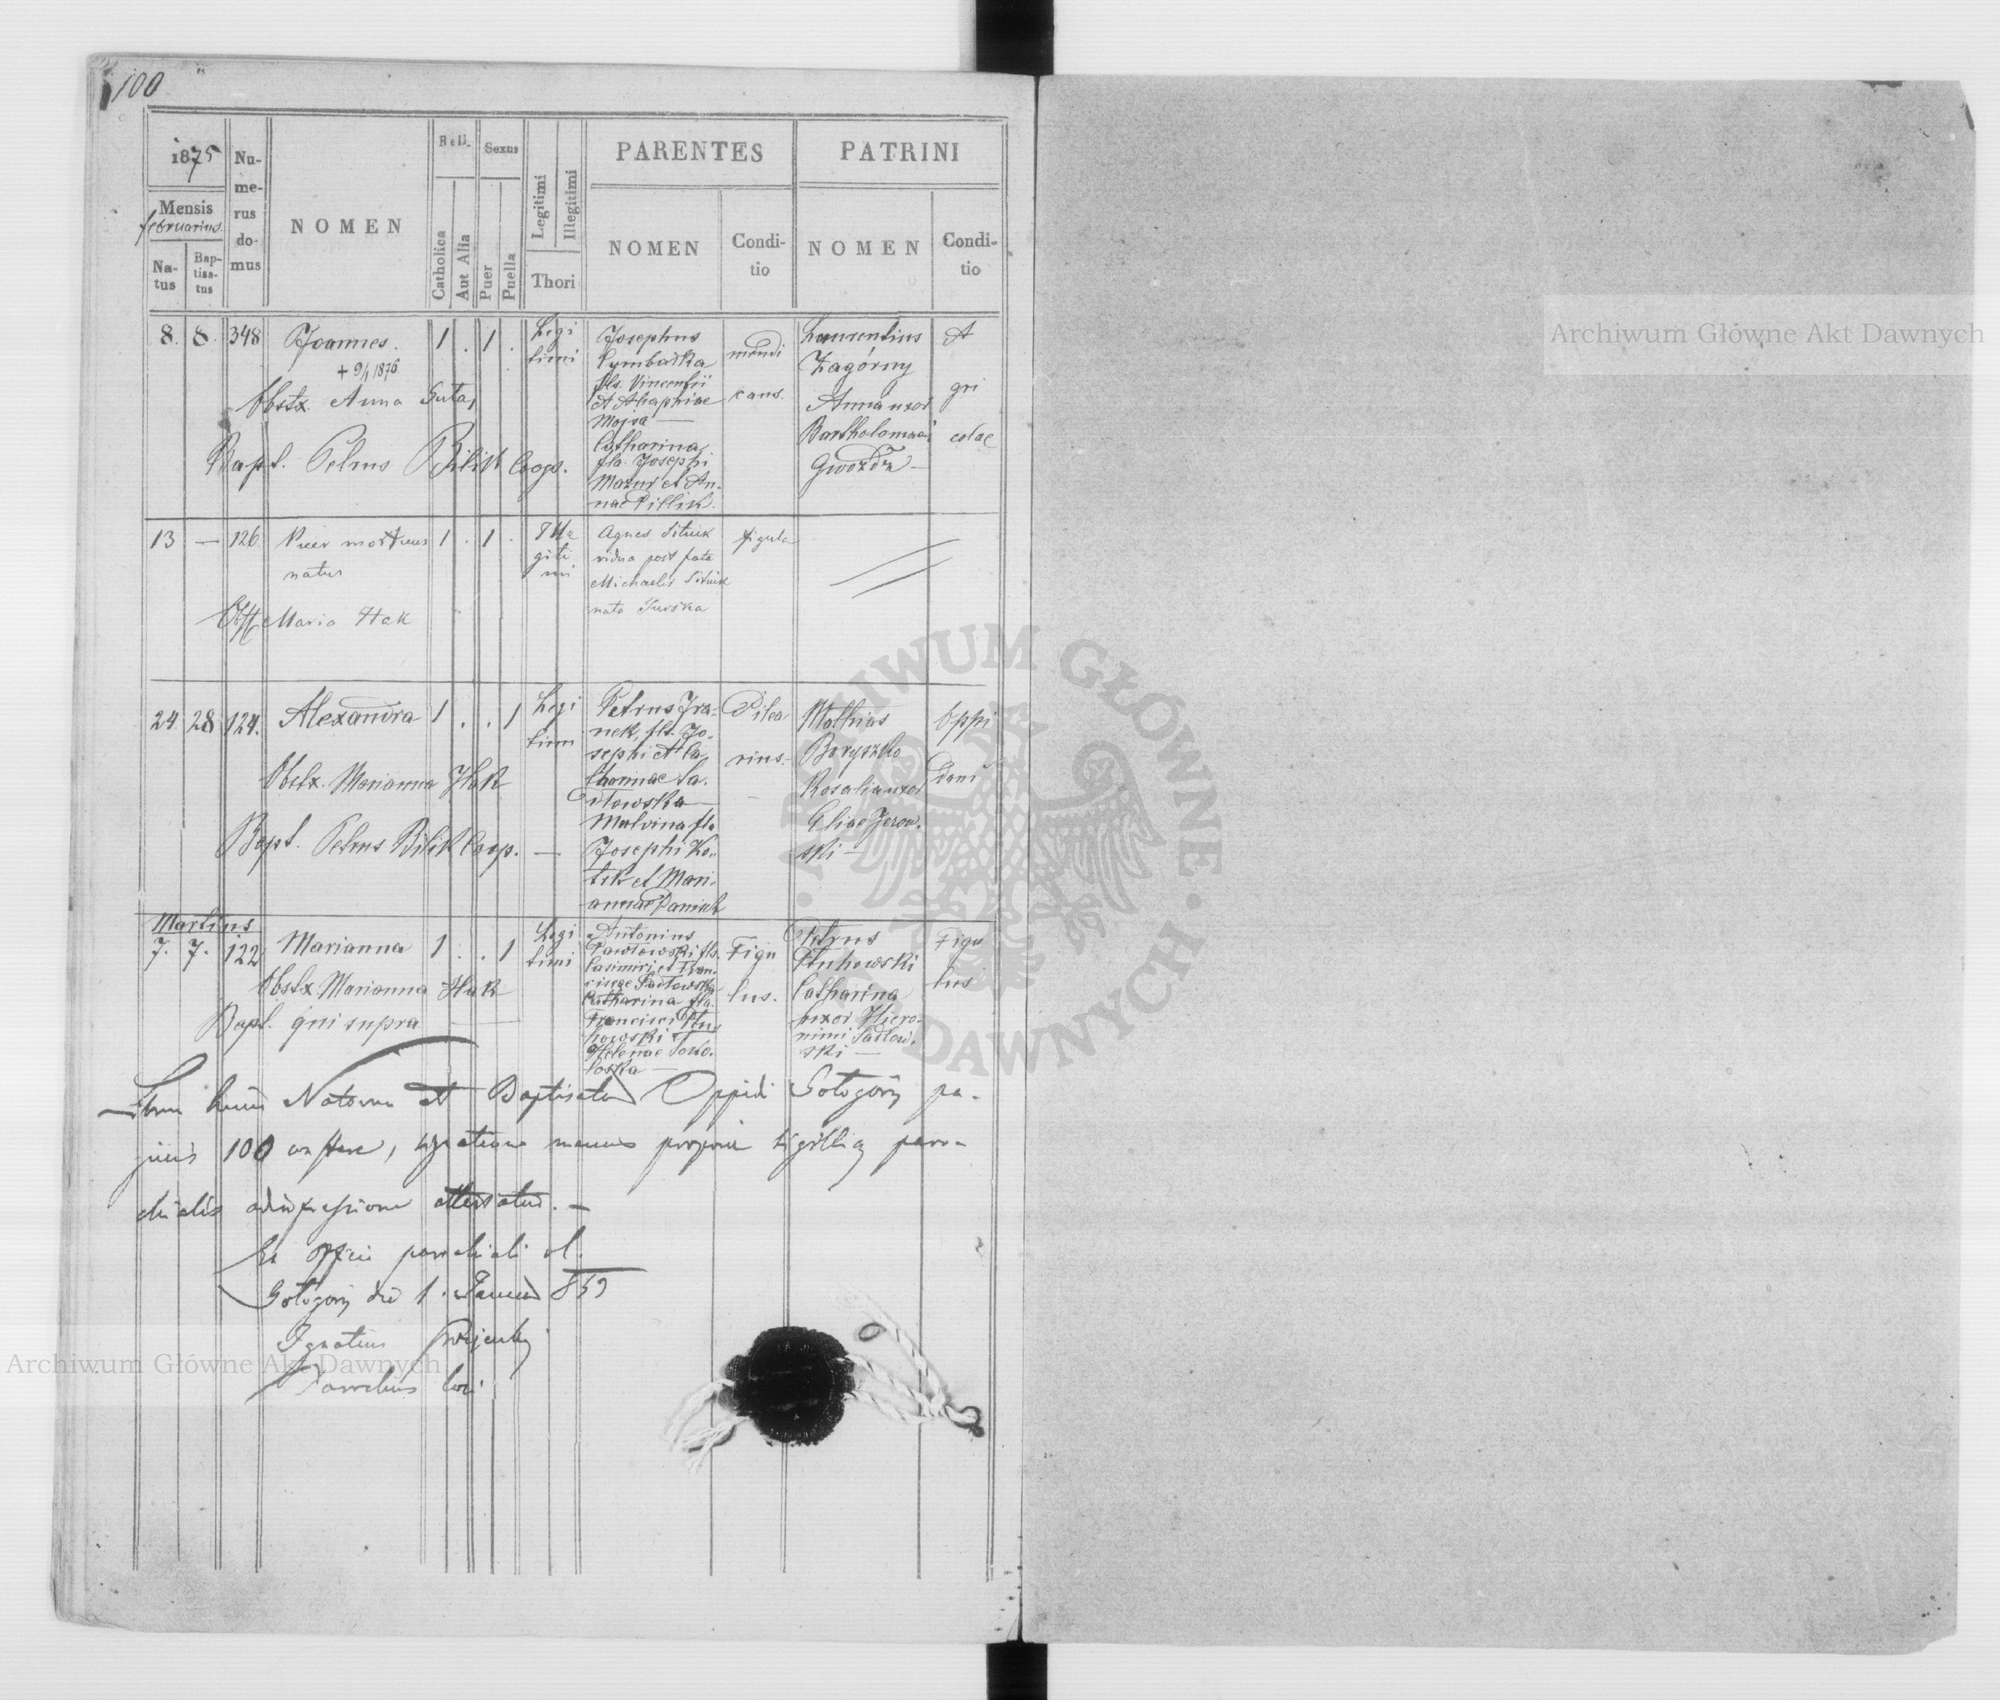 100
1875
Mensis
februarius
Na-
tus
Bap-
tisa-
tus
Nu-
me-
rus
do-
mus
NOMEN
Reli.
Catholica
Aut Alia
Sexus
Puer
Puella
Legitimi
Illegitimi
Thori
PARENTES
NOMEN
Condi-
tio
PATRINI
NOMEN
Condi-
tio
8. 8. 348 Joannes. 1 . 1 .
+ 9/1 1876
Obstx. Anna Guta
Bapt. Petrus Bilik Coop.
Legi
timi
Josephus
Cymbalka
fls. Vincentii
et Ahaphiae
Mojra —
Catharina
fla. Josephi
Mazur et An-
nae Pillik.
mendi
cans.
Laurentius
Zagórny
Anna uxor
Bartholomaei
Gwozdz —
A
gri
colae
13 — 126 Puer mortuus 1 . 1 .
natus
Obst Maria Hak
Ille
giti
mi
Agnes Situik
vidua post fata
Michaelis Situik
nata Jurska
figula
24. 28 124. Alexandra 1 . . 1
Obstx. Marianna Hak
Bapt. Petrus Bilik Coop. —
Legi
timi
Petrus Ira-
nek, fls. Jo-
sephi et Ca
tharinae Sa-
dlowska —
Malvina fla
Josephi Ko-
tik et Mari-
annae Daniuk
Pilea
rius.
Mathias
Boryszko
Rosalia uxor
Eliae Jerow.
ski —
Oppi
dani
Martius
7. 7. 122 Marianna 1 . . 1
Obstx Marianna Hak
Bapt. qui supra
Legi
timi
Antonius
Pawlowski fls.
Casimiri et Fran-
cisae Sadlowska
Catharina fla.
Francisci Stu
howski et
Helenae Soko-
loska —
Figu
lus.
Petrus
Stuhowski
Catharina
uxor Hiero-
nimi Sadlow.
ski —
Figu
lus
Librum hunc Natorum et Baptisatorum Oppidi Gołogóry pa-
ginis 100 constare, signatione manus propriae sigillique paro-
chialis adimpressione attestatur. —
Ex Officio parochiali r. l.
Gołogóry die 1. Januarii 859
Ignatius
Parochus loci
Archiwum Główne Akt Dawnych
Archiwum Główne Akt Dawnych
ARCHIWUM GŁÓWNE AKT DAWNYCH